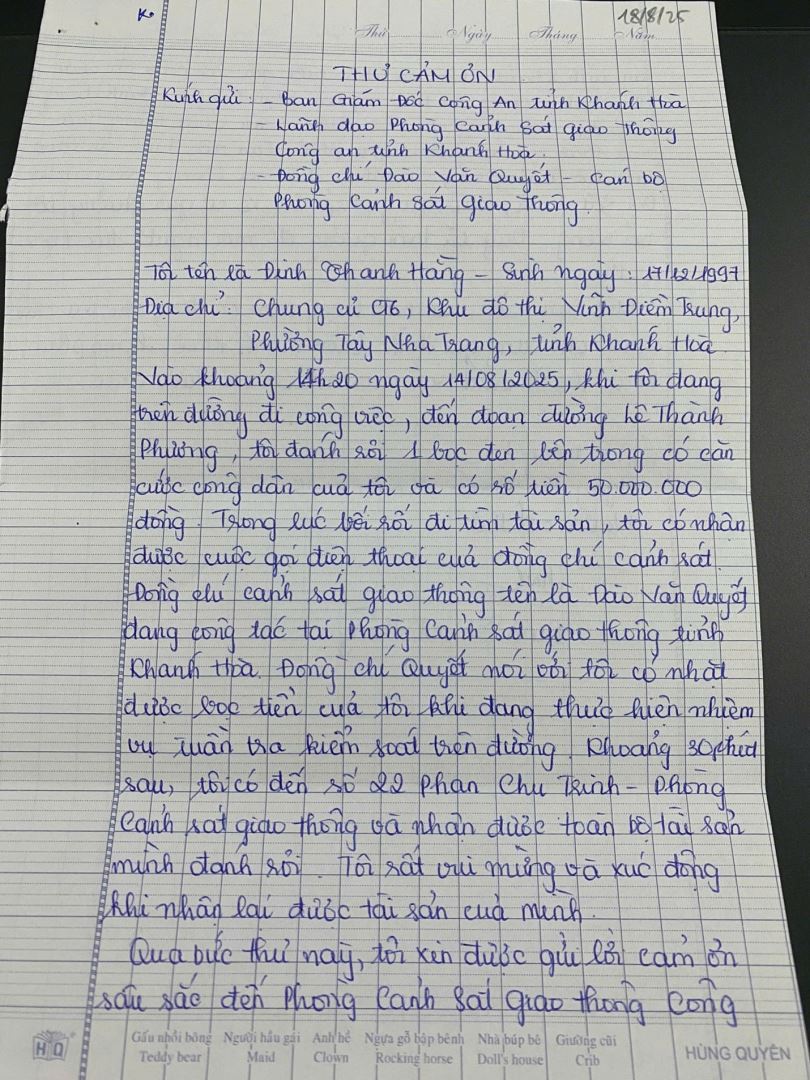 K.
18/8/25
Thứ Ngày Tháng Năm
THƯ CẢM ƠN
Kính gửi: - Ban Giám Đốc Công An tỉnh Khánh Hoà
- Lãnh đạo Phòng Cảnh sát giao thông
Công an tỉnh Khánh Hoà.
- Đồng chí Đào Văn Quyết - Cán bộ
Phòng Cảnh sát giao thông.
Tôi tên là Đinh Thanh Hằng - Sinh ngày: 17/12/1997
Địa chỉ: Chung cư CT6, Khu đô thị Vĩnh Điềm Trung,
Phường Tây Nha Trang, tỉnh Khánh Hoà.
Vào khoảng 14h20 ngày 14/08/2025, khi tôi đang
trên đường đi công việc, đến đoạn đường Lê Thành
Phương, tôi đánh rơi 1 bọc đen bên trong có căn
cước công dân của tôi và có số tiền 50.000.000
đồng. Trong lúc bối rối đi tìm tài sản, tôi có nhận
được cuộc gọi điện thoại của đồng chí cảnh sát.
Đồng chí cảnh sát giao thông tên là Đào Văn Quyết
đang công tác tại phòng Cảnh sát giao thông tỉnh
Khánh Hoà. Đồng chí Quyết nói với tôi có nhặt
được bọc tiền của tôi khi đang thực hiện nhiệm
vụ tuần tra kiểm soát trên đường. Khoảng 30 phút
sau, tôi có đến số 22 Phan Chu Trinh - Phòng
Cảnh sát giao thông và nhận được toàn bộ tài sản
mình đánh rơi. Tôi rất vui mừng và xúc động
khi nhận lại được tài sản của mình.
Qua bức thư này, tôi xin được gửi lời cảm ơn
sâu sắc đến Phòng Cảnh sát giao thông Công
HQ
Gấu nhồi bông Người hầu gái Anh hề Ngựa gỗ bập bênh Nhà búp bê Giường cũi
Teddy bear Maid Clown Rocking horse Doll's house Crib
HÙNG QUYÊN